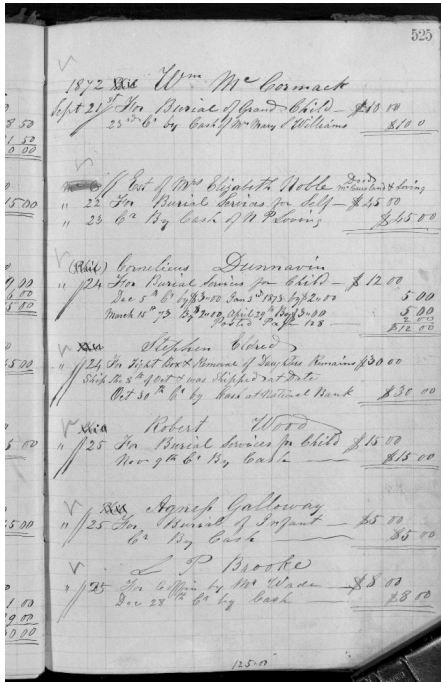 525
1872 Paid Wm McCormack
Sept 21st For Burial of Grand Child — $10 00
23rd Cr by Cash of Mrs Mary S Williams $10 0
Est of Mrs Elizabeth Noble Dood McCausland & Loving
" 22 For Burial Services for Self — $45 00
" 23 Cr By Cash of N P Loving $45 00
(Paid) Cornelius Dunnavin
" 24 For Burial Services for Child — $12 00
Dec 5th Cr by $3 00 Jan 3rd 1873 by $2 00 5 00
March 15th 73 By $2 00 April 29th By $3 00 5 00
Posted Page 128 2 00
$12 00
Stephen Eldred
" 24 For Tight Box & Removal of Remains $30 00
Ship the 8th of Oct & was Shipped at Date
Oct 30th Cr by Cash at National Bank $30 00
Paid Robert Wood
" 25 For Burial Services for Child $15 00
Nov 9th Cr By Cash $15 00
Agness Galloway
" 25 For Burial of Infant — $5 00
Cr By Cash $5 00
L P Brooke
" 25 For Coffin by Mr Wade — $8 00
Dec 28th Cr by Cash $8 00
125.00
8 50
1 50
0 00
15 00
9 00
6 00
5 00
45 00
5 00
5 00
1 00
9 00
0 00